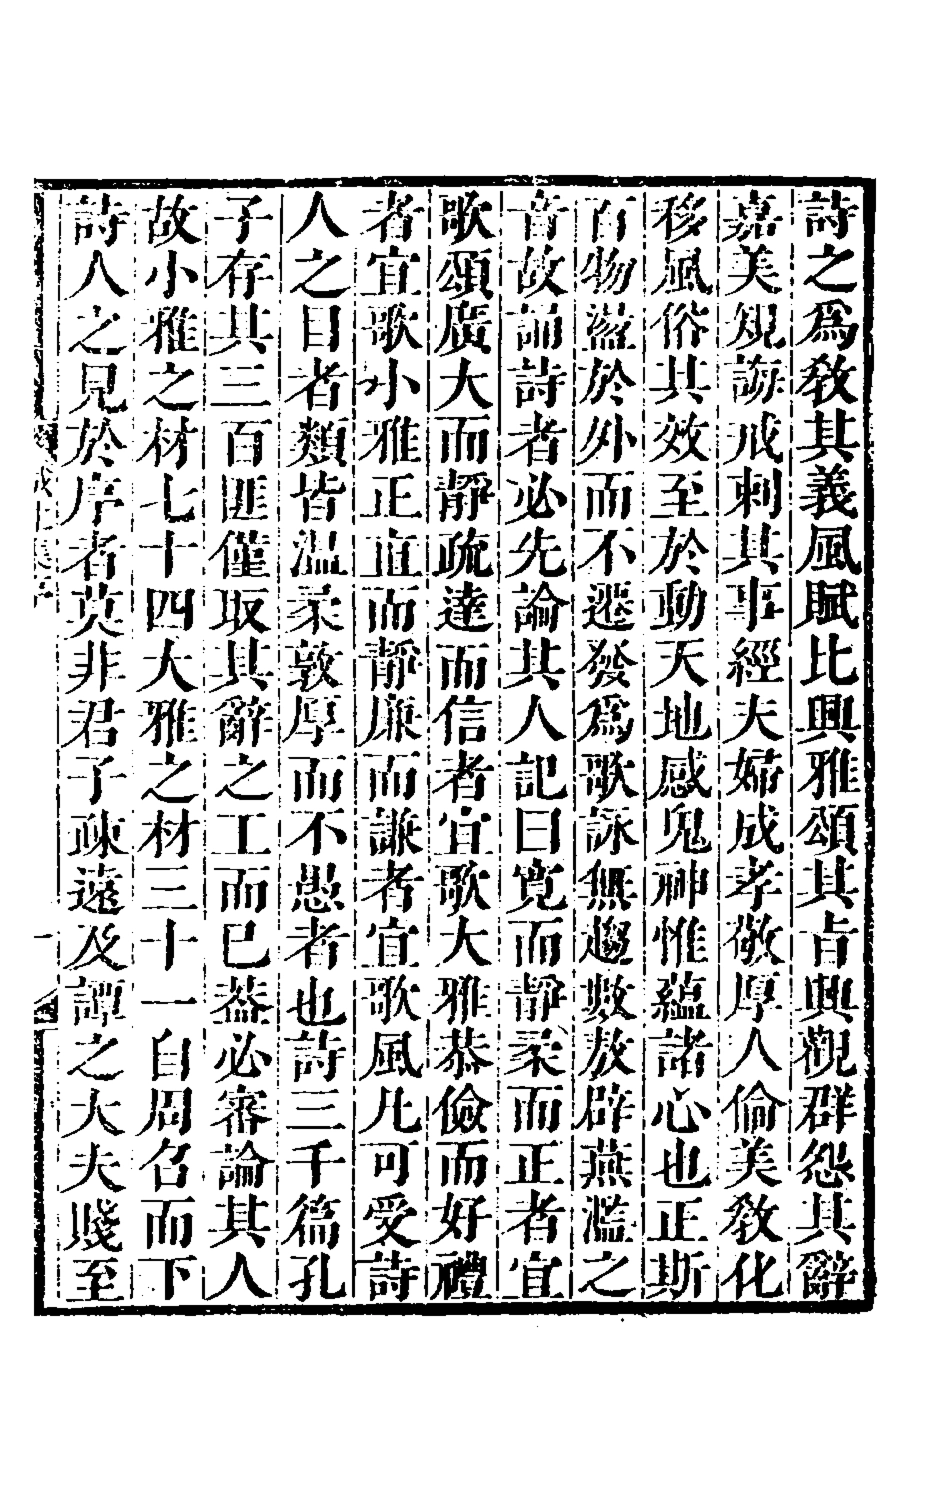 詩之爲敎其義風賦比興雅頌其㫖興觀群怨其辭
嘉美規誨戒刺其事經夫婦成孝敬厚人倫美敎化
移風俗其效至於動天地感鬼神惟蘊諸心也正斯
百物盪於外而不遷發爲歌詠無趨數敖辟燕濫之
音故誦詩者必先論其人記曰寛而靜柔而正者宜
歌頌廣大而靜疏達而信者宜歌大雅恭儉而好禮
者宜歌小雅正直而靜廉而謙者宜歌風凡可受詩
人之目者類皆温柔敦厚而不愚者也詩三千篇孔
子存其三百匪僅取其辭之工而已葢必審論其人
故小雅之材七十四大雅之材三十一自周召而下
詩人之見於序者莫非君子疎遠及譚之大夫賤至